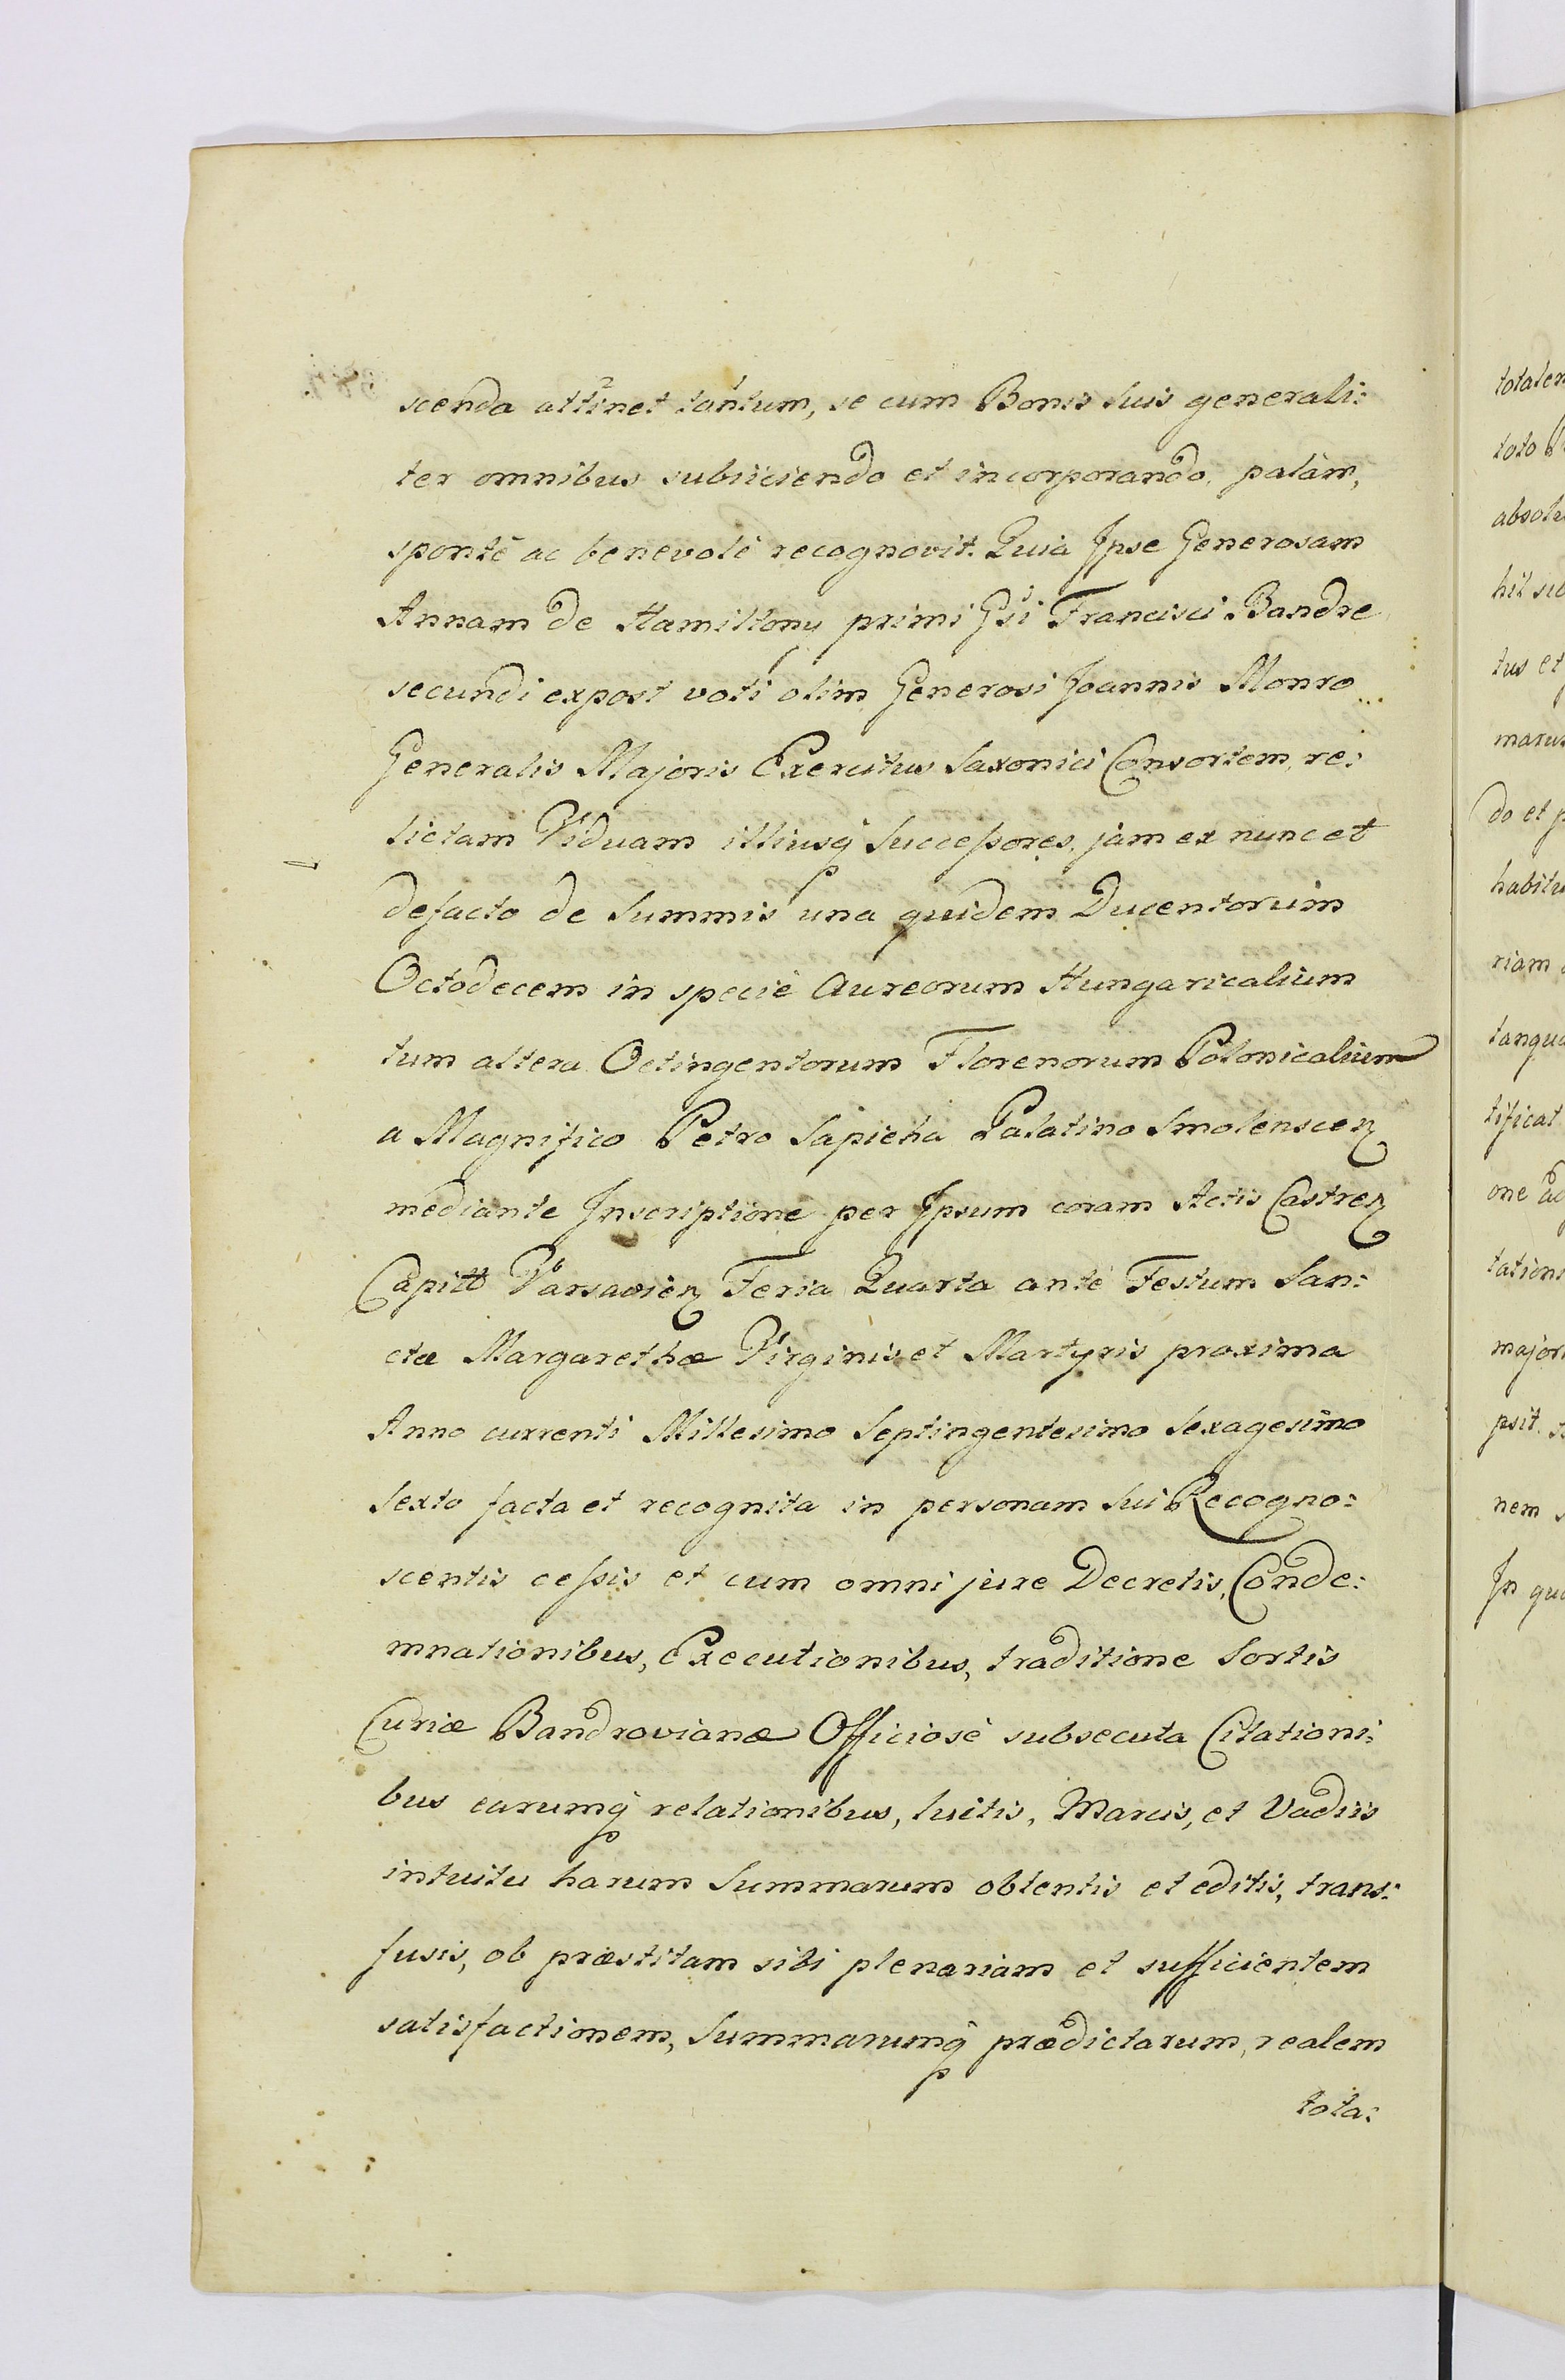 scenda attinet tantum, se cum Bonis suis generali:
ter omnibus subiiciendo et incorporando, palàm,
spontè ac benevolè recognovit. Quia Ipse Generosam
Annam de Hamiltony primi Gsi Francisci Bandre
secundi expost voti olim Generosi Joannis Monro
Generalis Majoris Exercitus Saxonici Consortem, re:
lictam Viduam illiusq́ Successores, jam ex nunc et
defacto de Summis una quidem Ducentorum
Octodecem in specie Aureorum Hungaricalium
tum altera Octingentorum Florenorum Polonicalium
a Magnifico Petro Sapieha Palatino Smolenscen
mediante Inscriptione per Ipsum coram Actis Castren
Capitt Varsavien Feria Quarta antè Festum San:
ctæ Margarethæ Virginis et Martyris proxima
Anno currenti Millesimo Septingentesimo Sexagesimo
Sexto facta et recognita in personam sui Recogno:
scentis cessis et cum omni jure Decretis, Conde:
mnationibus, Executionibus, traditione Sortis
Curiæ Bandrovianæ Officiosè subsecuta Citationi:
bus earumq́ relationibus, luitis, Marcis, et Vadiis
intuitu harum Summarum obtentis et editis, trans:
fusis, ob præstitam sibi plenariam et sufficientem
satisfactionem, Summarumq́ prædictarum, realem
tota:
totalem
toto
absolu
hil su
tus et
marum
do et p
habitu
riam
tanqua
tificat
one ac
tationi
majori
psit.
nem s
In quo